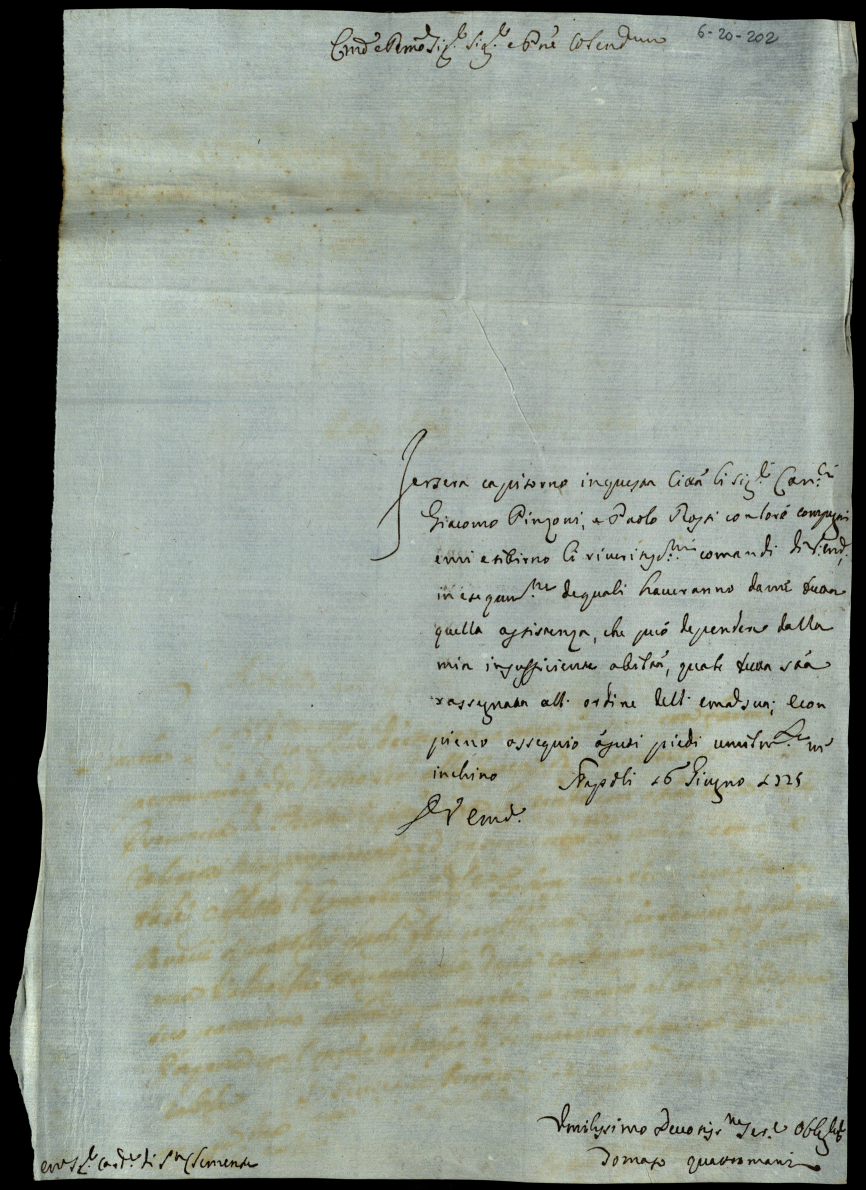 6-20-202
Em.º e Rmo Sig.r Sig.r e Pne Colendmo
Jersera capitorno in questa Città li Sig.ri Can.ci
Giacomo Pinzoni, e Paolo Rossi con loro compagni
e mi esibirno li riveritiss.mi comandi di V. Em.,
in esecuz.ne de quali haveranno da me tutta
quella assistenza, che può dependere dalla
mia insufficiente abilità, quale tutta sarà
rassegnata all' ordine dell' em.a sua; e con
pieno ossequio à suoi piedi umilm.te m'
inchino Napoli 16 Giugno 1725
D V. Em.
Umilissimo Devotiss.mo Ser.e Obblig.to
Tomaso Quattromani
Em.o Sig.r Card.le di S. Clemente